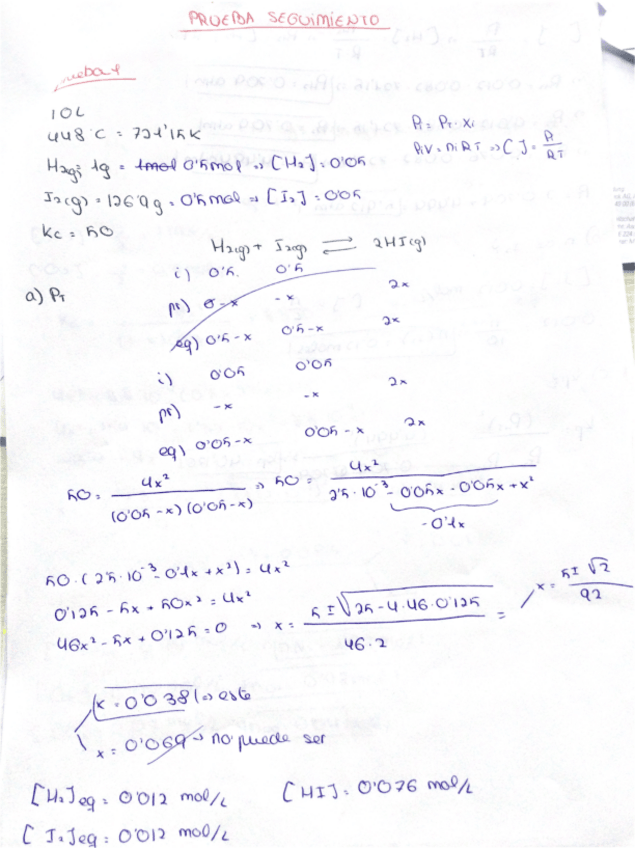 PRUEBA SEGUIMIENTO
10L
448°C = 721'15K
Pi = PT · Xi
PiV = niRT => [ ] = Pi/RT
H2(g): 1g = 1mol 0'5mol => [H2] = 0'05
I2(g) = 126'9g = 0'5mol => [I2] = 0'05
Kc = 50
H2(g) + I2(g) ⇌ 2HI(g)
i) 0'5. 0'5
a) PT
pr) 0-x -x 2x
eq) 0'5-x 0'5-x 2x
i) 0'05 0'05
pr) -x -x 2x
eq) 0'05-x 0'05-x 2x
50 = 4x² / (0'05-x)(0'05-x) => 50 = 4x² / 2'5·10⁻³ - 0'05x - 0'05x + x²
-0'1x
50·(2'5·10⁻³ - 0'1x + x²) = 4x²
0'125 - 5x + 50x² = 4x²
46x² - 5x + 0'125 = 0 => x = 5±√25-4·46·0'125 / 46·2 = x = 5±√2 / 92
x = 0'038 => este
x = 0'069 → no puede ser
[H2]eq = 0'012 mol/L [HI] = 0'076 mol/L
[I2]eq = 0'012 mol/L